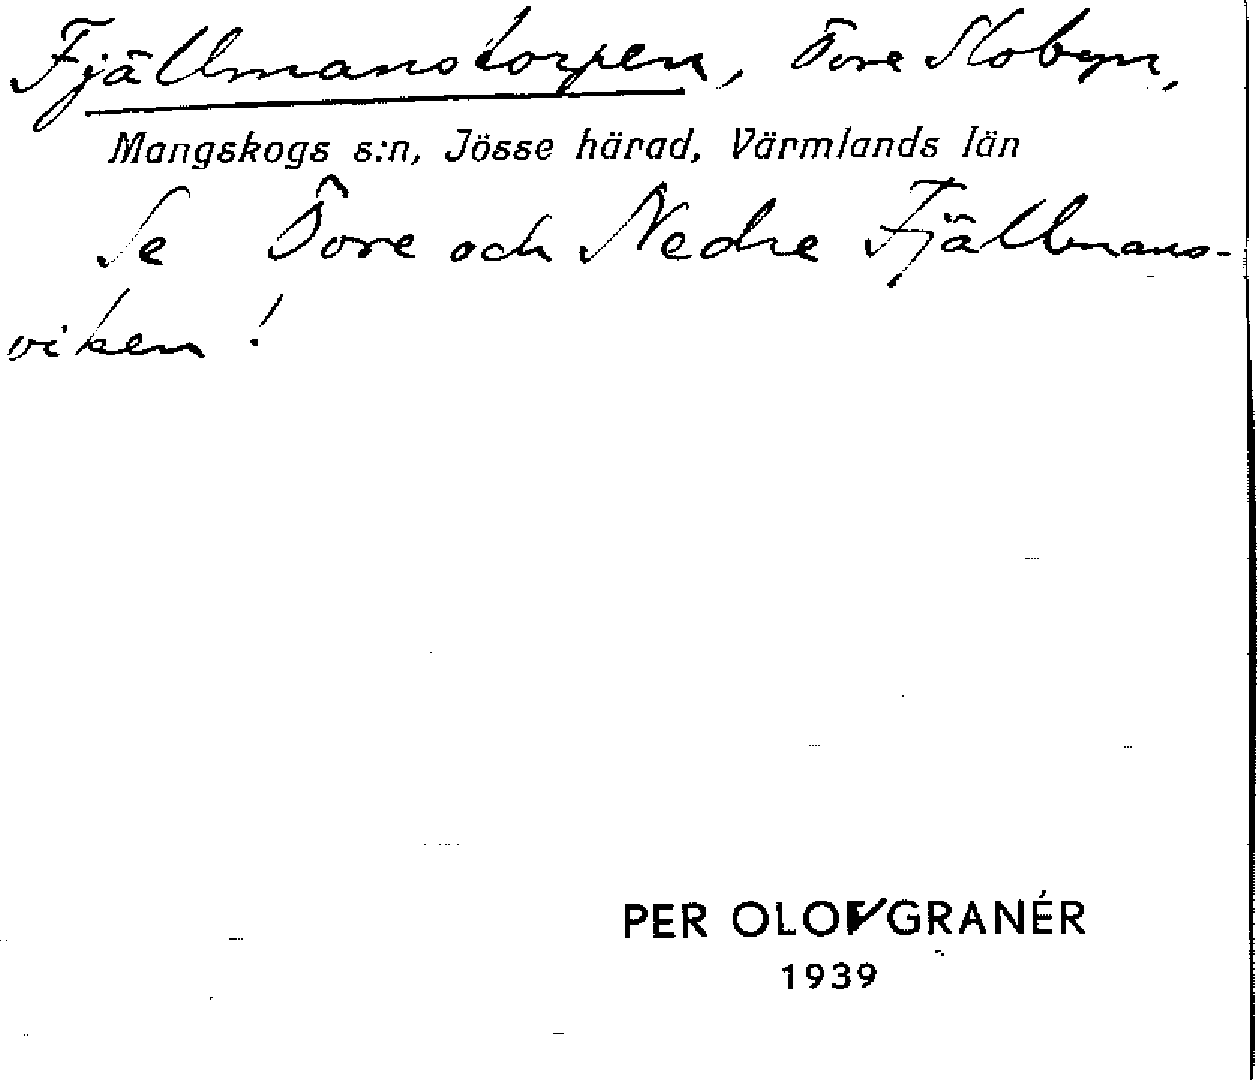 Fjällmanstorpen, Övre Slobyn,
Mangskogs s:n, Jösse härad, Värmlands län
Se Övre och Nedre Fjällmans-
viken!
PER OLOV GRANÉR
1939